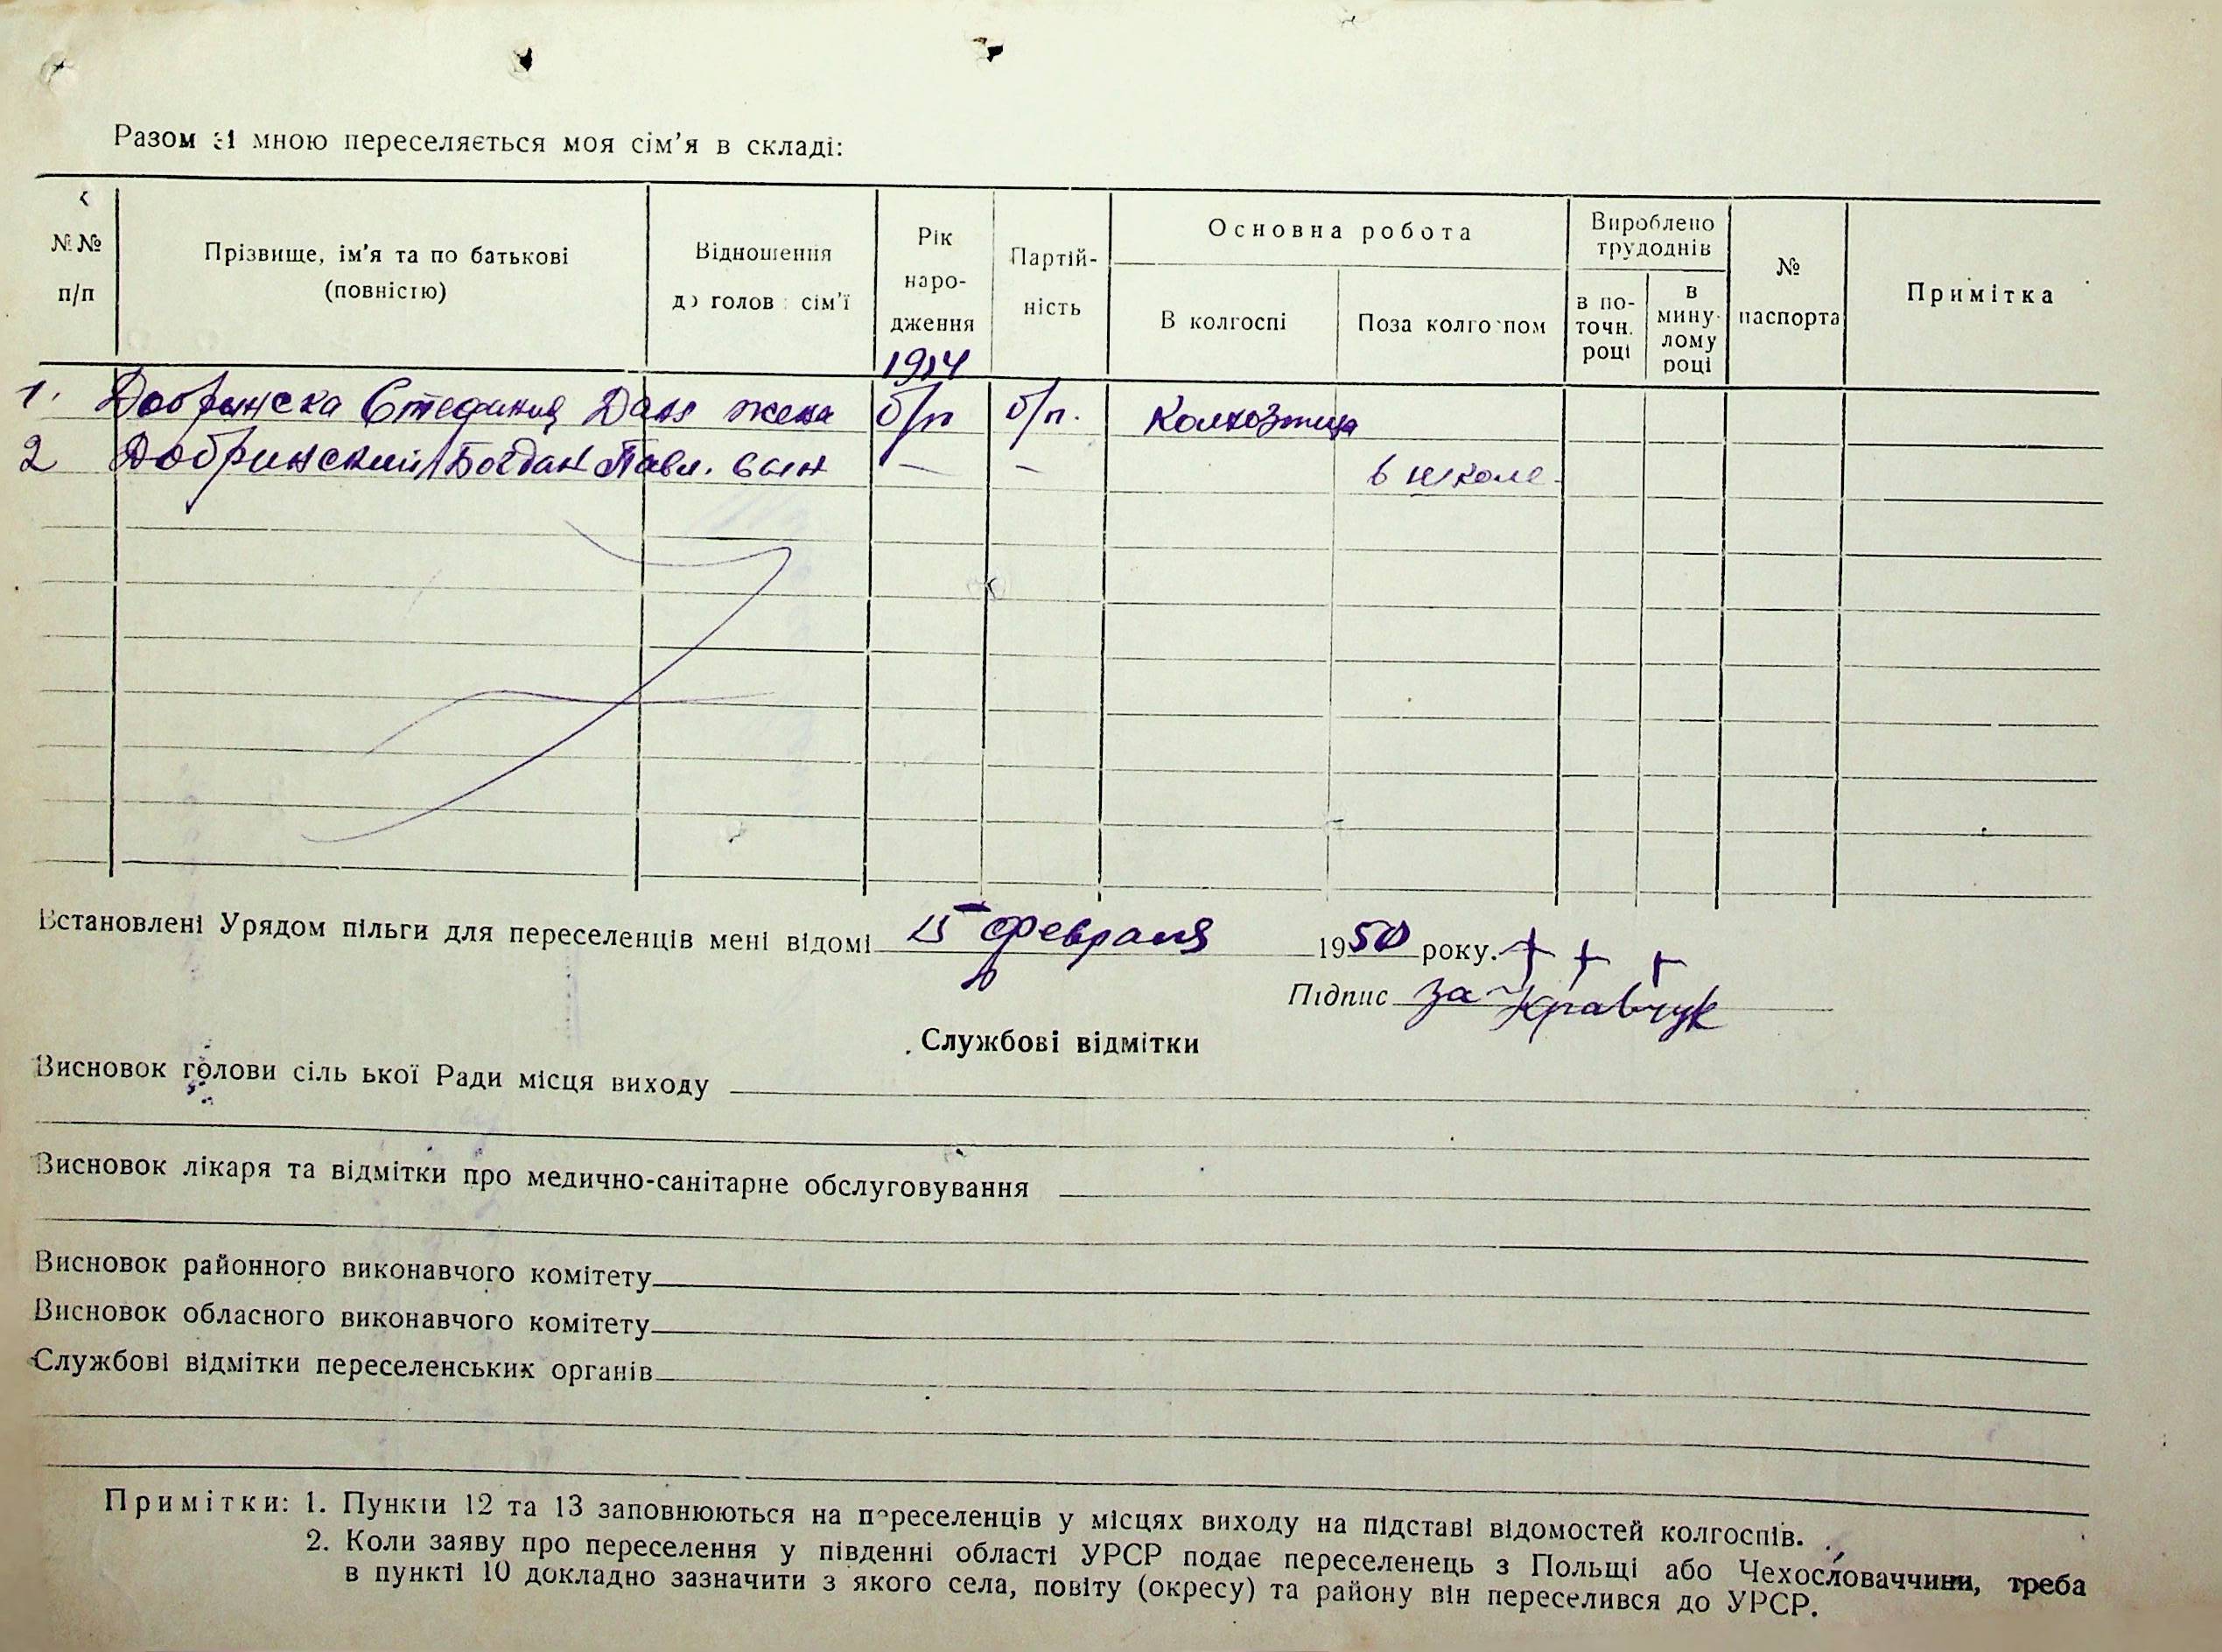 Разом зі мною переселяється моя сім'я в складі:
№№ п/п
Прізвище, ім'я та по батькові (повністю)
Відношення до голови сім'ї
Рік народження
Партійність
Основна робота
В колгоспі
Поза колгоспом
Вироблено трудоднів
в поточн. році
в минулому році
№ паспорта
Примітка
1914
1. Добрынска Стефания Дан жена б/п б/п. Колхозница
2 Добринский Богдан Павл. сын — — в школе
Встановлені Урядом пільги для переселенців мені відомі 15 февраля 1950 року. + + +
Підпис за Кравчук
Службові відмітки
Висновок голови сільської Ради місця виходу
Висновок лікаря та відмітки про медично-санітарне обслуговування
Висновок районного виконавчого комітету
Висновок обласного виконавчого комітету
Службові відмітки переселенських органів
Примітки: 1. Пункти 12 та 13 заповнюються на переселенців у місцях виходу на підставі відомостей колгоспів.
2. Коли заяву про переселення у південні області УРСР подає переселенець з Польщі або Чехословаччини, треба
в пункті 10 докладно зазначити з якого села, повіту (окресу) та району він переселився до УРСР.